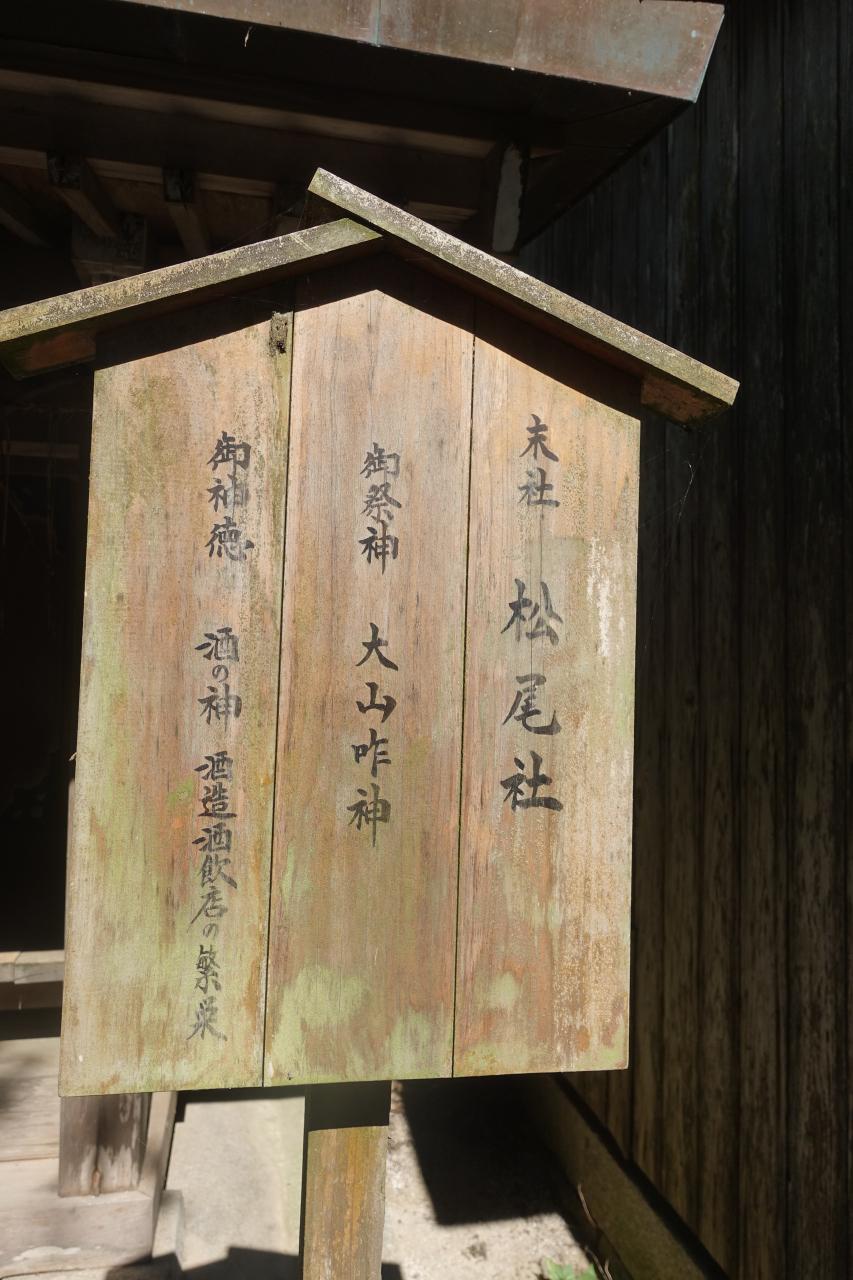 末社 松尾社
御祭神 大山咋神
御神徳 酒の神 酒造酒飲店の繁栄